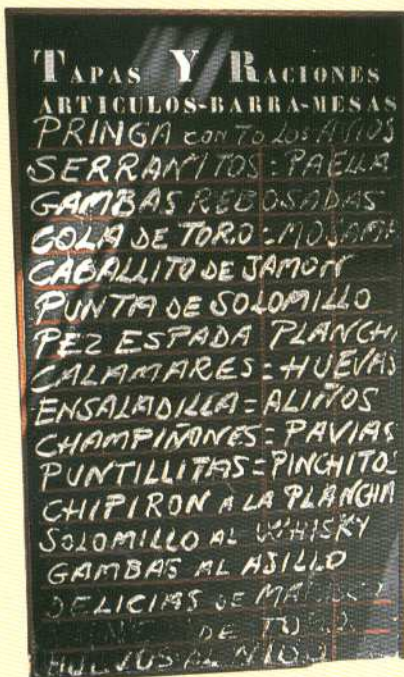 TAPAS Y RACIONES
ARTICULOS-BARRA-MESAS
PRINGA CON TO LOS AVIOS
SERRANITOS = PAELLA
GAMBAS REBOSADAS
COLA DE TORO = MOJAMA
CABALLITO DE JAMON
PUNTA DE SOLOMILLO
PEZ ESPADA PLANCHA
CALAMARES = HUEVAS
ENSALADILLA = ALIÑOS
CHAMPIÑONES = PAVIAS
PUNTILLITAS = PINCHITOS
CHIPIRON A LA PLANCHA
SOLOMILLO AL WHISKY
GAMBAS AL AJILLO
DELICIAS DE
DE
HUEVOS AL NIDO